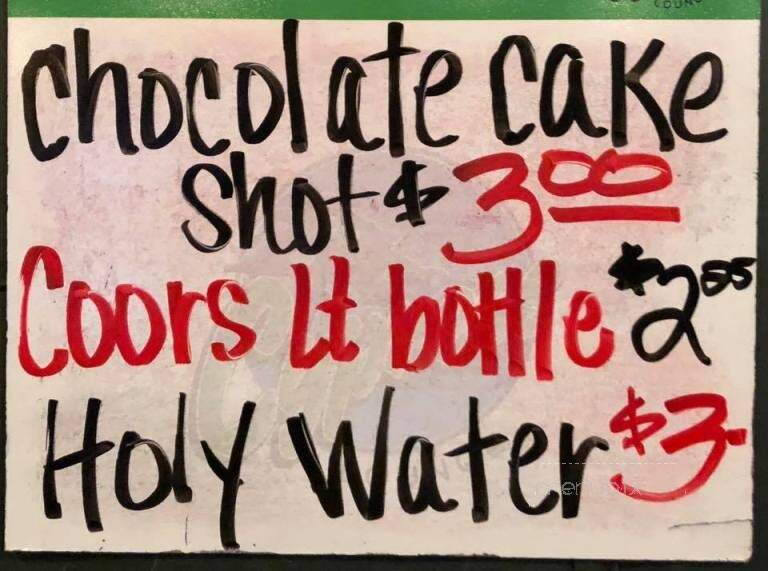 Chocolate Cake
Shot $3.00
Coors Lt bottle $2.55
Holy Water $3-